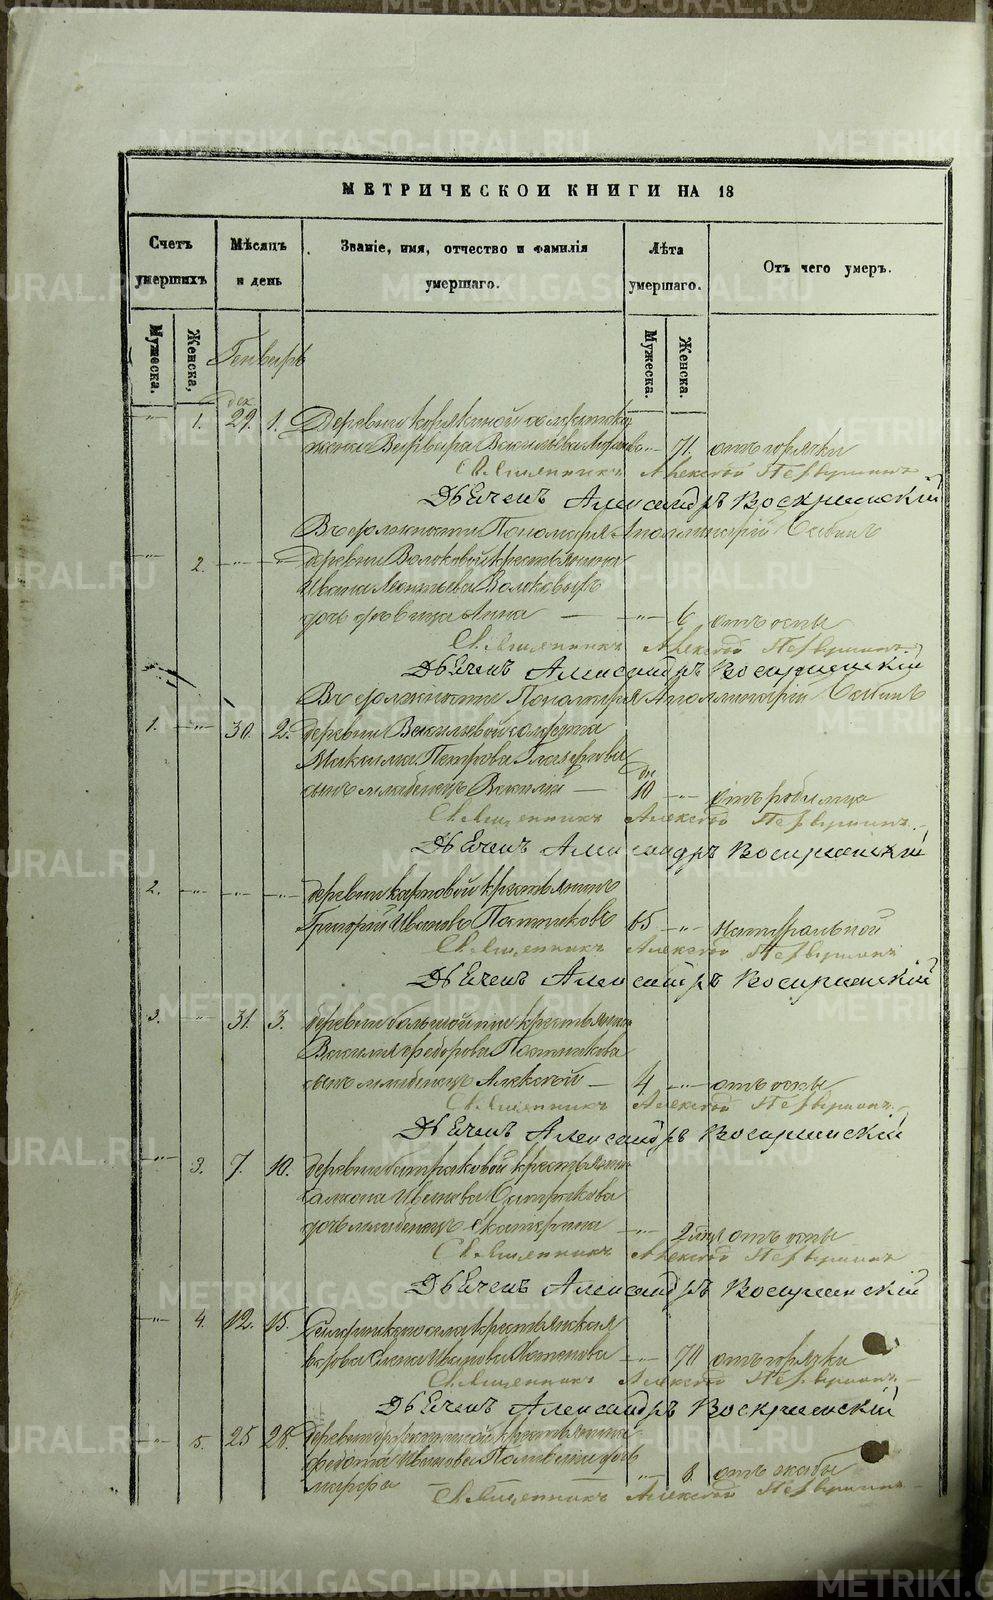 МЕТРИЧЕСКОИ КНИГИ НА 18
Счетъ умершихъ
Мѣсяцъ и день
Званіе, имя, отчество и фамилія умершаго.
Лѣта умершаго.
Отъ чего умеръ.
Мужеска.
Женска,
Мужеска.
Женска.
Генварь
дек.
1. 29. 1. Деревни
жена Варвара Васильева 71. отъ горячки
Священникъ Алексѣй Первушинъ
Дьячекъ Александръ Воскресенскій
Въ должности Пономаря Аполлинарій
2. деревни Волковой крестьянина
Ивана Леонтьева Волковыхъ
дочь дѣвица Анна 6 отъ оспы
Священникъ Алексѣй Первушинъ
Дьячекъ Александръ Воскресенскій
Въ должности Пономаря Аполлинарій
1. 30. 2. деревни Васильевой солдата
Максима Петрова
дн
сынъ младенецъ Василій 10 отъ родимца
Священникъ Алексѣй Первушинъ
Дьячекъ Александръ Воскресенскій
2. деревни Карповой крестьянинъ
Григорій Ивановъ Постниковъ 65 натуральной
Священникъ Алексѣй Первушинъ
Дьячекъ Александръ Воскресенскій
3. 31. 3. деревни крестьянина
Василия Федорова Постникова
сынъ младенецъ Алексѣй 4 отъ оспы
Священникъ Алексѣй Первушинъ
Дьячекъ Александръ Воскресенскій
3. 7. 10. деревни крестьянина
Ивanова
дочь младенецъ Екатерина 2 отъ оспы
Священникъ Алексѣй Первушинъ
Дьячекъ Александръ Воскресенскій
4. 12. 15. села крестьянская
вдова Елена Иванова 70 отъ горячки
Священникъ Алексѣй Первушинъ
Дьячекъ Александръ Воскресенскій
5. 25 28. деревни крестьянина
Федота Иванова дочь
Марфа 8. отъ жабы
Священникъ Алексѣй Первушинъ
METRIKI.GASO-URAL.RU